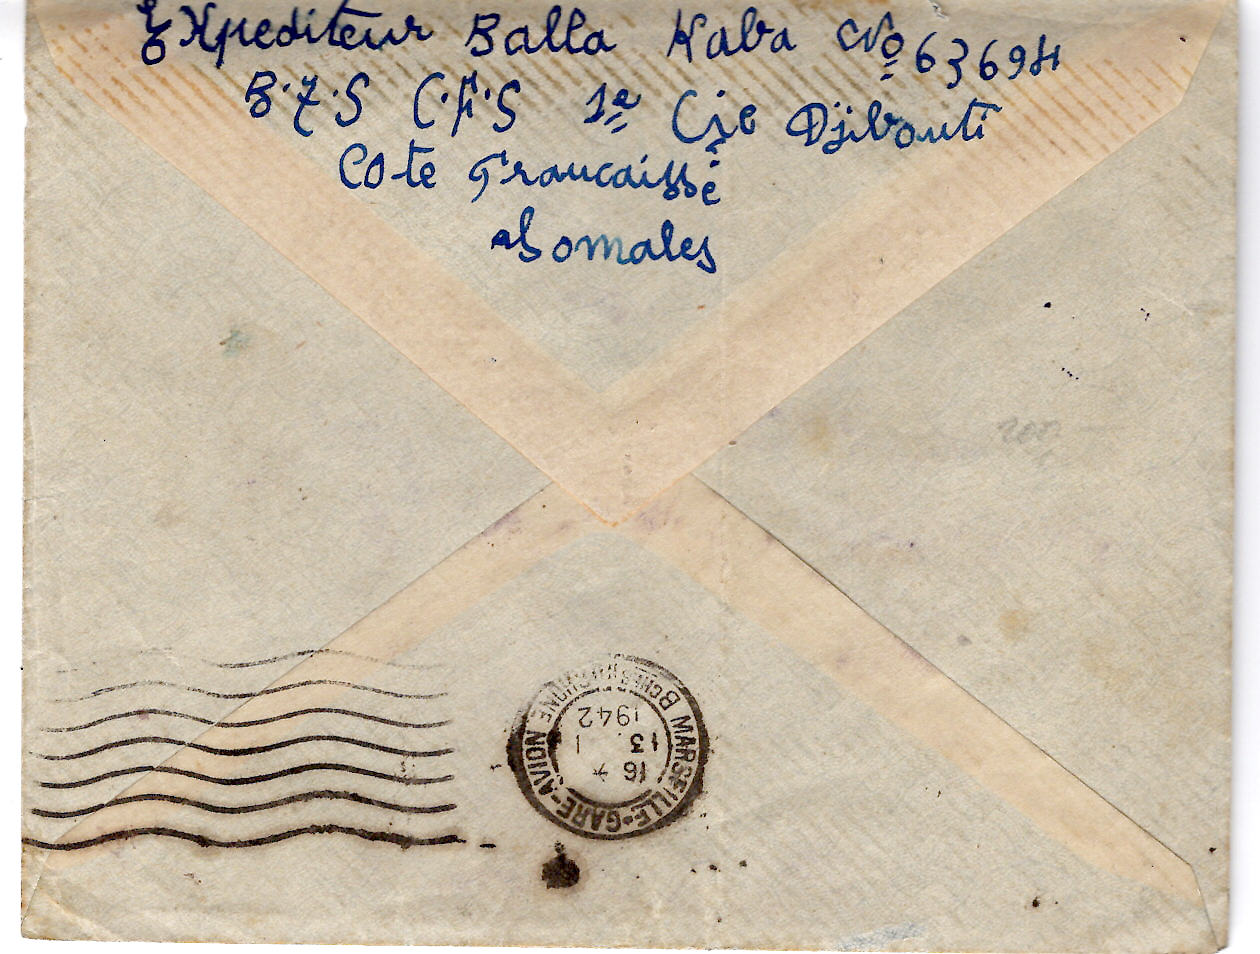 Expediteur Balla Kaba No 63694
B.Z.S C.F.S 1e Cie Djibouti
Cote Francaisse
Somales
MARSEILLE-GARE-AVION
16 *
13. 1
1942
BCHES DU RHONE